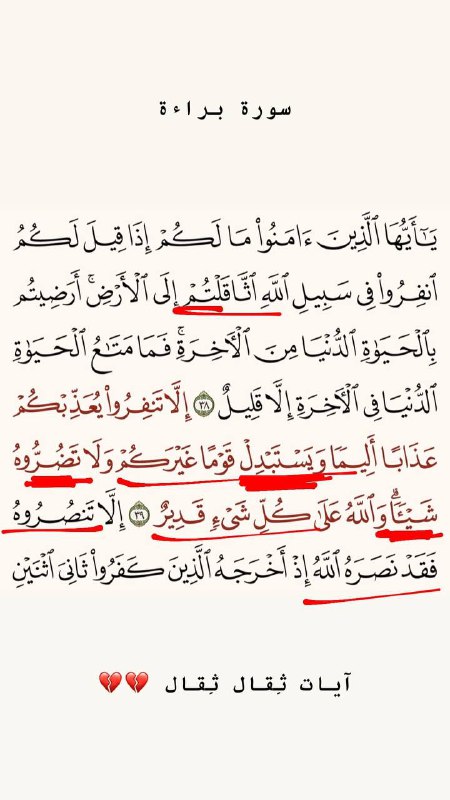 سورة براءة
يَـٰٓأَيُّهَا ٱلَّذِينَ ءَامَنُوا۟ مَا لَكُمْ إِذَا قِيلَ لَكُمُ
ٱنفِرُوا۟ فِى سَبِيلِ ٱللَّهِ ٱثَّاقَلْتُمْ إِلَى ٱلْأَرْضِ ۚ أَرَضِيتُم
بِٱلْحَيَوٰةِ ٱلدُّنْيَا مِنَ ٱلْـَٔاخِرَةِ ۚ فَمَا مَتَـٰعُ ٱلْحَيَوٰةِ
ٱلدُّنْيَا فِى ٱلْـَٔاخِرَةِ إِلَّا قَلِيلٌ ٣٨ إِلَّا تَنفِرُوا۟ يُعَذِّبْكُمْ
عَذَابًا أَلِيمًا وَيَسْتَبْدِلْ قَوْمًا غَيْرَكُمْ وَلَا تَضُرُّوهُ
شَيْـًٔا ۗ وَٱللَّهُ عَلَىٰ كُلِّ شَىْءٍ قَدِيرٌ ٣٩ إِلَّا تَنصُرُوهُ
فَقَدْ نَصَرَهُ ٱللَّهُ إِذْ أَخْرَجَهُ ٱلَّذِينَ كَفَرُوا۟ ثَانِىَ ٱثْنَيْنِ
آيات ثِقال ثِقال 💔💔